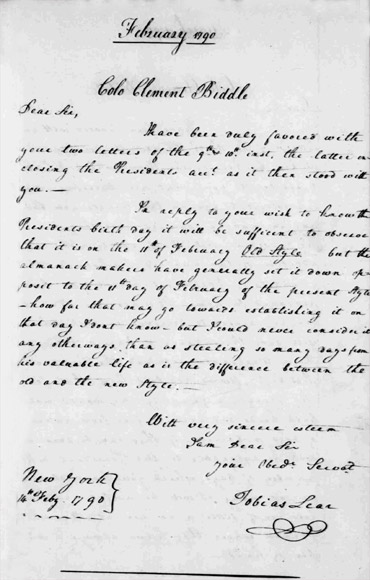 February 1790
Colo Clement Biddle
Dear Sir,
I have been duly favored with
your two letters of the 9th & 10th inst, the latter en
closing the Presidents acct as it then stood with
you.—
In reply to your wish to know the
Presidents birth day it will be sufficient to observe
that it is on the 11th of February Old Style but the
almanack makers have generally set it down op-
posit to the 11th day of February of the present Style
-how far that may go towards establishing it on
that day I dont know - but I could never consider it
any otherways than as stealing so many days from
his valuable life as is the difference between the
old and the new Style.—
With very sincere esteem
I am Dear Sir
your Obedt Servat
Tobias Lear
New York
14th Feby 1790